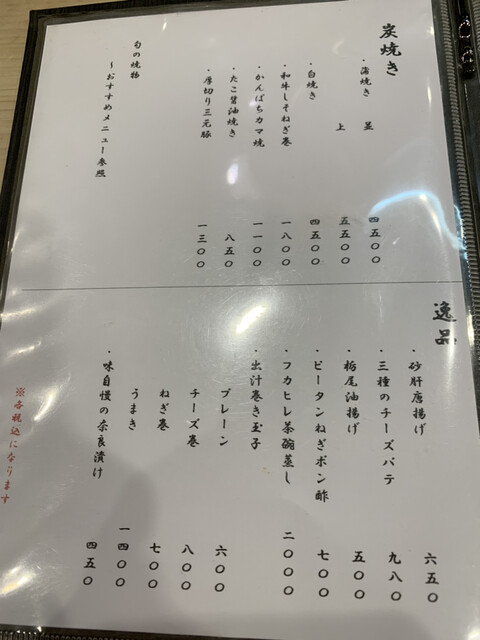 炭焼き
・蒲焼き 並 四五〇〇
上 五五〇〇
・白焼き 四五〇〇
・和牛しそねぎ巻 一八〇〇
・かんぱちカマ焼 一一〇〇
・たこ醤油焼き 八五〇
・厚切り三元豚 一三〇〇
旬の焼物
～おすすめメニュー参照
逸品
・砂肝唐揚げ 六五〇
・三種のチーズパテ 九八〇
・栃尾油揚げ 五〇〇
・ピータンねぎポン酢 七〇〇
・フカヒレ茶碗蒸し 二〇〇〇
・出汁巻き玉子
プレーン 六〇〇
チーズ巻 八〇〇
ねぎ巻 七〇〇
うまき 一四〇〇
・味自慢の奈良漬け 四五〇
※各税込になります